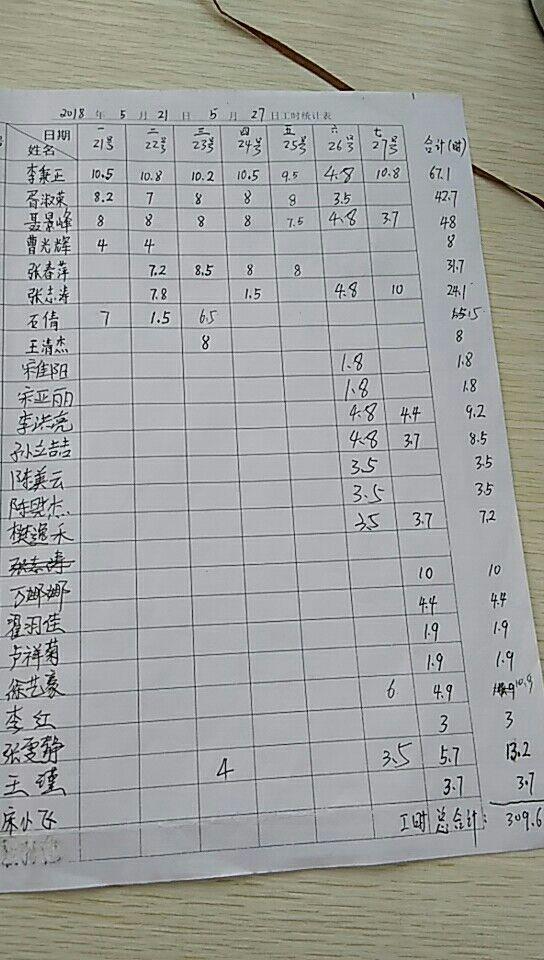 2018 年 5 月 21 日 5 月 27 日工时统计表
日期 一 二 三 四 五 六 七
姓名 21号 22号 23号 24号 25号 26号 27号 合计(时)
李秉正 10.5 10.8 10.2 10.5 9.5 4.8 10.8 67.1
胥淑荣 8.2 7 8 8 8 3.5 42.7
聂景峰 8 8 8 8 7.5 4.8 3.7 48
曹光辉 4 4 8
张春萍 7.2 8.5 8 8 31.7
张志涛 7.8 1.5 4.8 10 24.1
石倩 7 1.5 6.5 15
王清杰 8 8
宋佳阳 1.8 1.8
宋亚丽 1.8 1.8
李洪亮 4.8 4.4 9.2
孙立喆 4.8 3.7 8.5
陈美云 3.5 3.5
陈思杰 3.5 3.5
樊逸禾 3.5 3.7 7.2
张志涛
万娜娜 10 10
翟羽佳 4.4 4.4
卢祥菊 1.9 1.9
徐艺豪 1.9 1.9
李红 6 4.9 10.9
张雯静 3 3
王瑾 4 3.5 5.7 13.2
小飞 3.7 3.7
工时总合计: 309.6